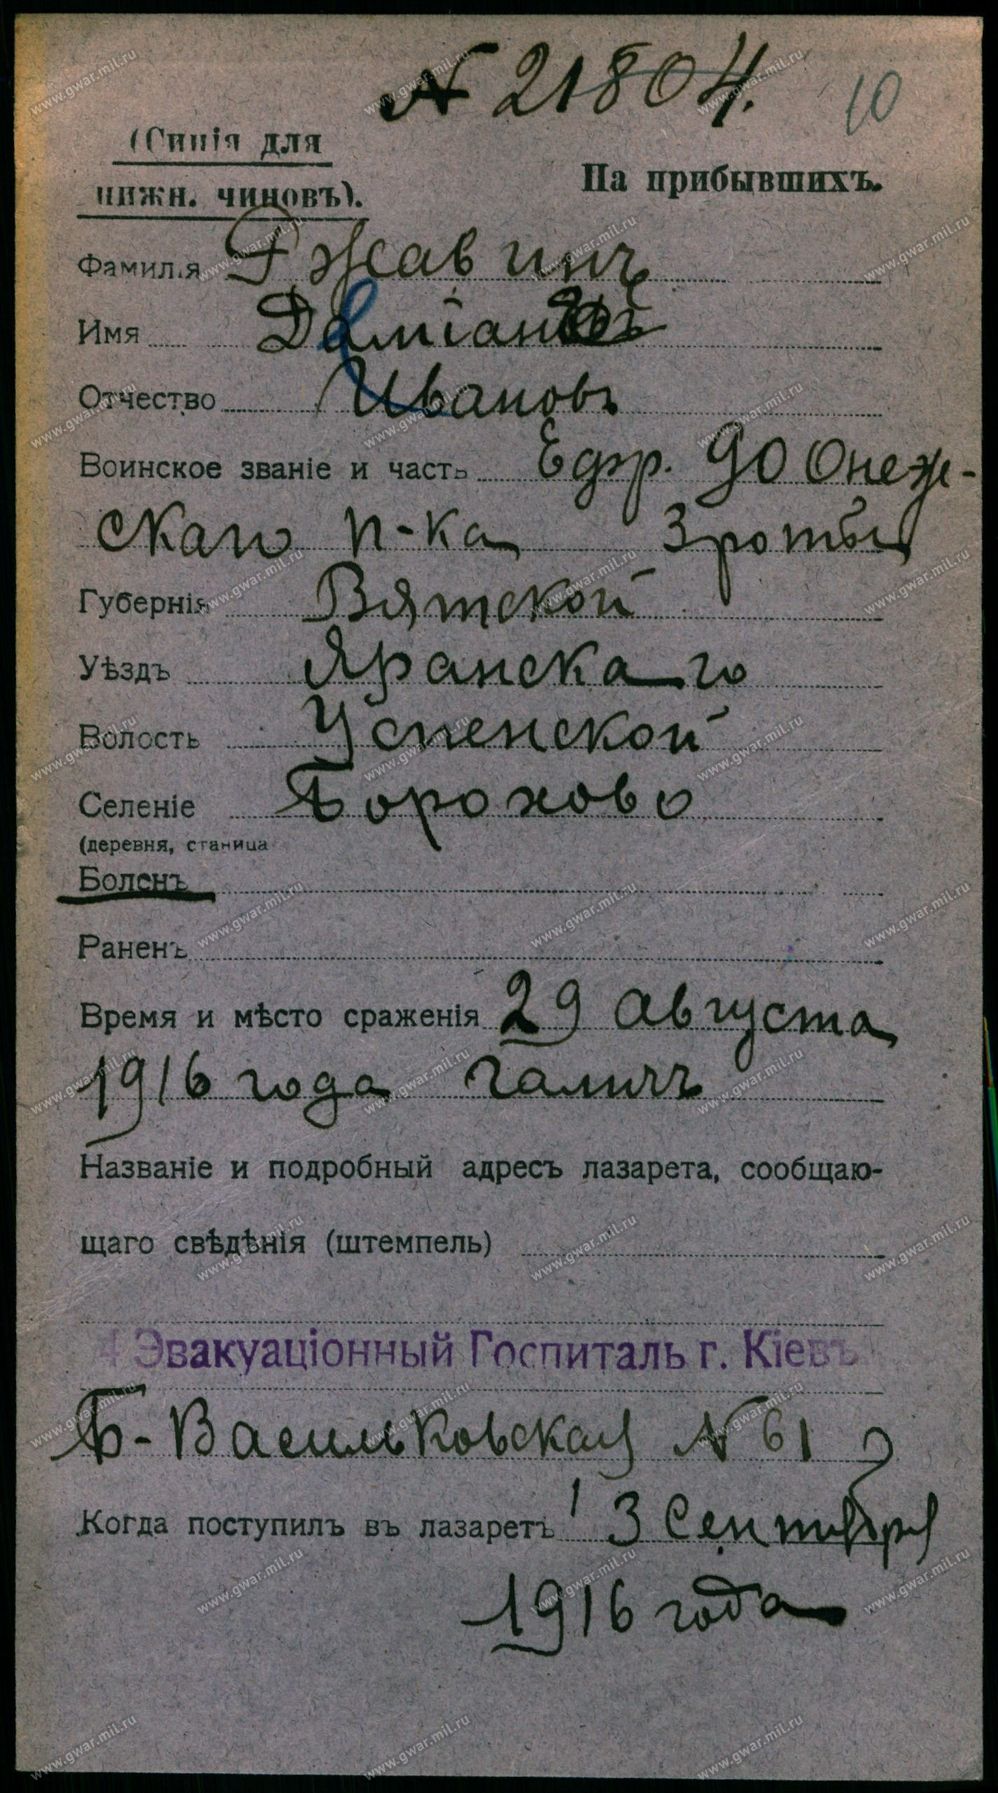 № 21804. 10
(Синія для
нижн. чиновъ).
На прибывшихъ.
Фамилія Ржавинъ
Имя Даміанъ
Отчество Ивановъ
Воинское званіе и часть Ефр. 90 Онеж-
скаго п-ка 3 роты
Губернія Вятской
Уѣздъ Яранскаго
Волость Успенской
Селеніе Борохово
(деревня, станица
Боленъ
Раненъ
Время и мѣсто сраженія 29 Августа
1916 года Галичъ
Названіе и подробный адресъ лазарета, сообщаю-
щаго свѣдѣнія (штемпель)
4 Эвакуаціонный Госпиталь г. Кіевъ
Б-Васильковская № 61
Когда поступилъ въ лазаретъ 3 Сентября
1916 года